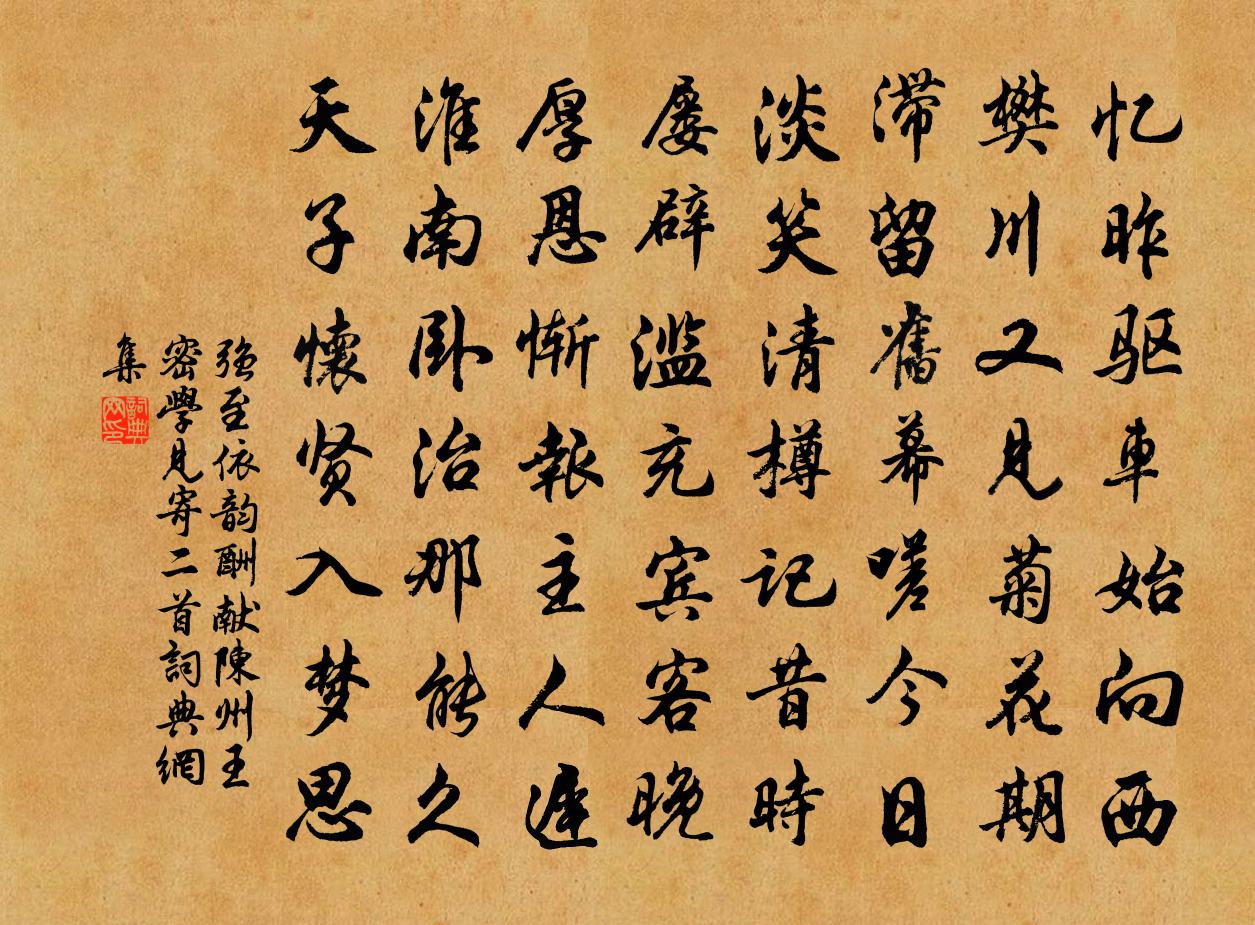 忆昨驱車始向西
樊川又见菊花期
滞留舊幕嗟今日
淡笑清樽记昔時
屡辟滥充宾客晚
厚恩惭報主人遲
淮南卧治那能久
天子懷贤入梦思
強至依韵酬献陳州王
密學见寄二首詞典網
集
詞典網印